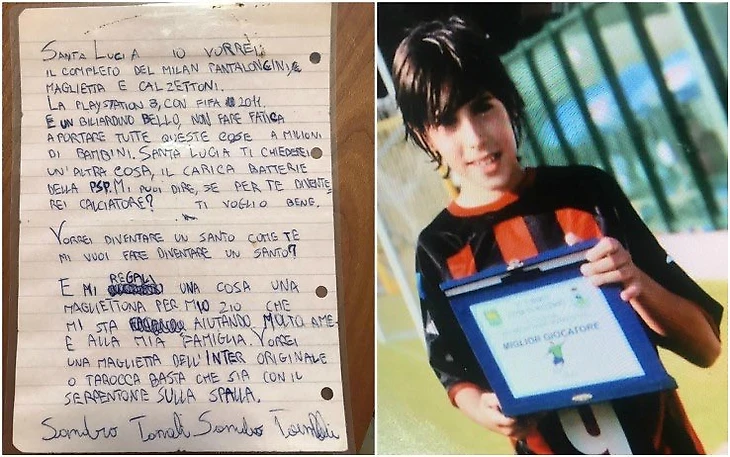 SANTA LUCIA IO VORREI:
IL COMPLETO DEL MILAN PANTALONCINI,
MAGLIETTA E CALZETTONI.
LA PLAYSTATION 3, CON FIFA 2011.
E UN BILIARDINO BELLO, NON FARE FATICA
A PORTARE TUTTE QUESTE COSE A MILIONI
DI BAMBINI. SANTA LUCIA TI CHIEDEREI
UN'ALTRA COSA, IL CARICA BATTERIE
DELLA PSP. MI PUOI DIRE, SE PER TE DIVENTE
REI CALCIATORE? TI VOGLIO BENE.
VORREI DIVENTARE UN SANTO COME TE
MI VUOI FARE DIVENTARE UN SANTO?
E MI REGALI UNA COSA UNA
MAGLIETTONA PER MIO ZIO CHE
MI STA AIUTANDO MOLTO A ME
E ALLA MIA FAMIGLIA. VORREI
UNA MAGLIETTA DELL'INTER ORIGINALE
O TAROCCA BASTA CHE SIA CON IL
SERPENTONE SULLA SPALLA.
Sandro Tonali Sandro Tonali
MIGLIOR GIOCATORE
9